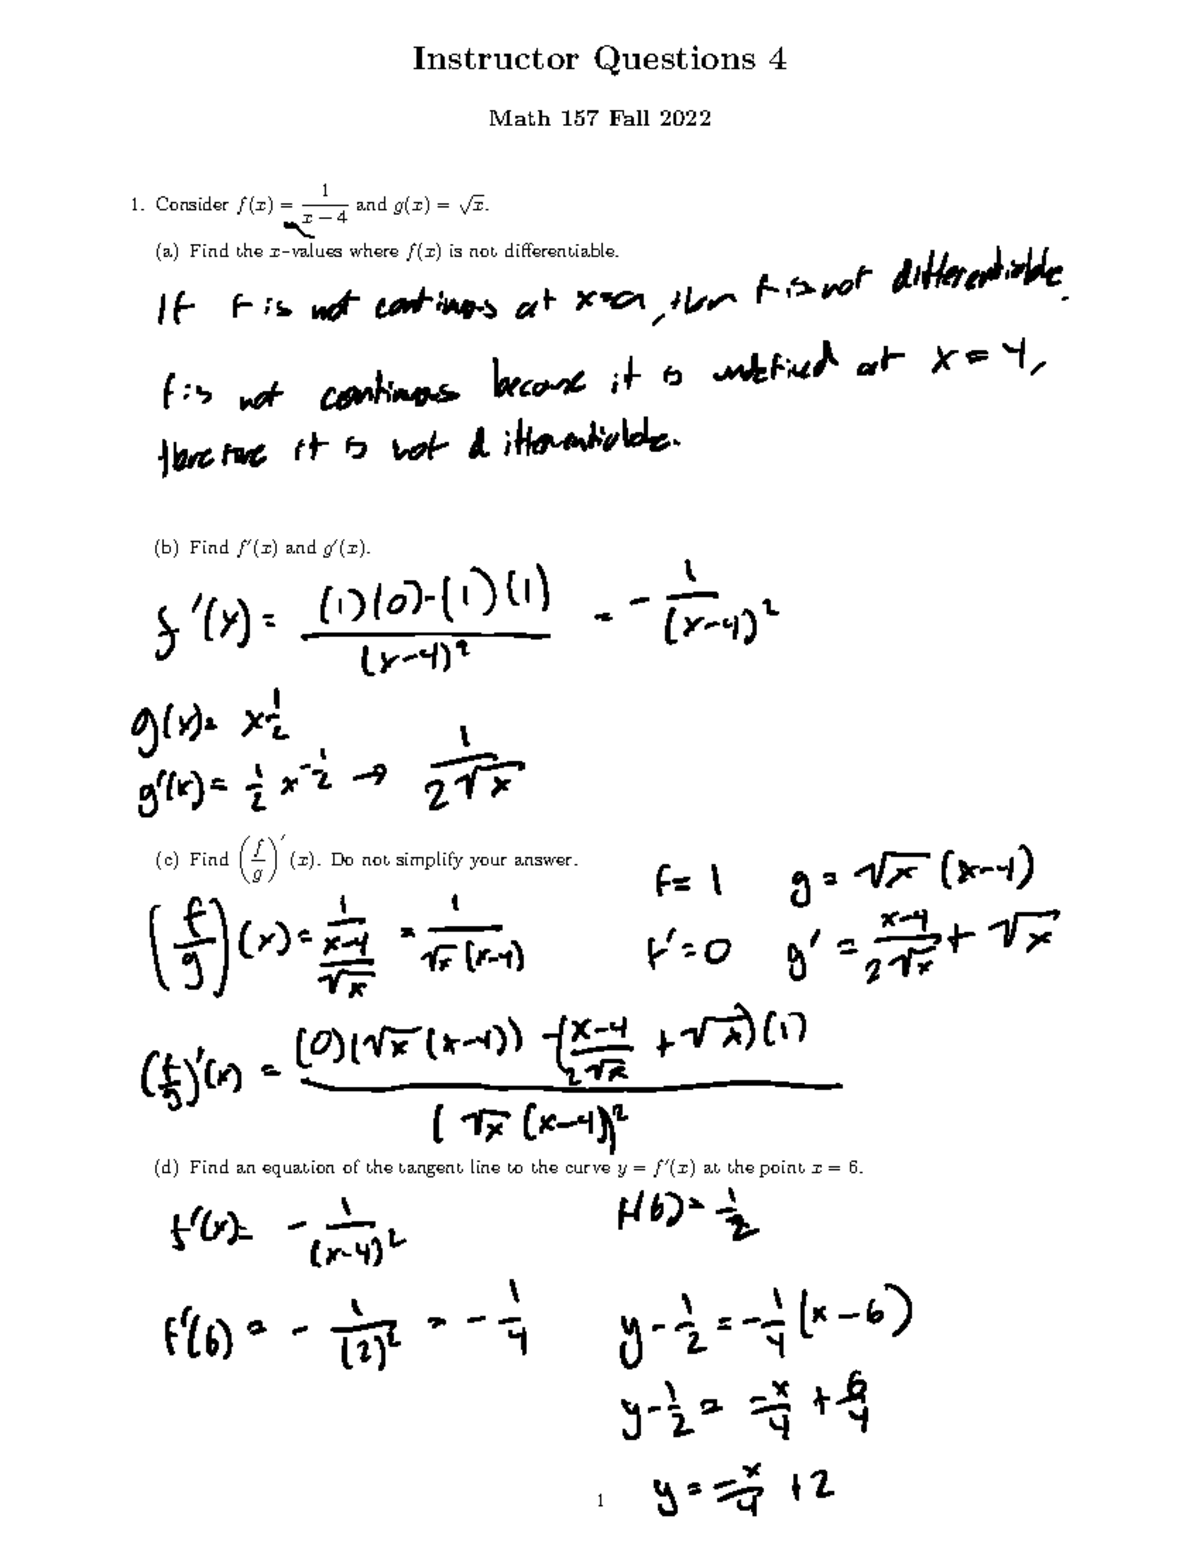 Instructor Questions 4
Math 157 Fall 2022
1. Consider f(x) = 1/(x − 4) and g(x) = √x.
(a) Find the x-values where f(x) is not differentiable.
If f is not continuous at x=a, then f is not differentiable.
f is not continuous because it is undefined at x = 4,
therefore it is not differentiable.
(b) Find f′(x) and g′(x).
f'(x) = ((1)(0)-(1)(1))/(x-4)² = - 1/(x-4)²
g(x) = x^(1/2)
g'(x) = 1/2 x^(-1/2) → 1/(2√x)
(c) Find (f/g)′(x). Do not simplify your answer.
f = 1 g = √x (x-4)
(f/g)(x) = (1/(x-4))/√x = 1/(√x (x-4))
f' = 0 g' = (x-4)/(2√x) + √x
(f/g)'(x) = ((0)(√x (x-4)) - ((x-4)/(2√x) + √x)(1))/(√x (x-4))²
(d) Find an equation of the tangent line to the curve y = f′(x) at the point x = 6.
f'(x) = - 1/(x-4)² f(6) = 1/2
f'(6) = - 1/(2)² = - 1/4 y - 1/2 = -1/4 (x - 6)
y - 1/2 = -x/4 + 6/4
y = -x/4 + 2
1